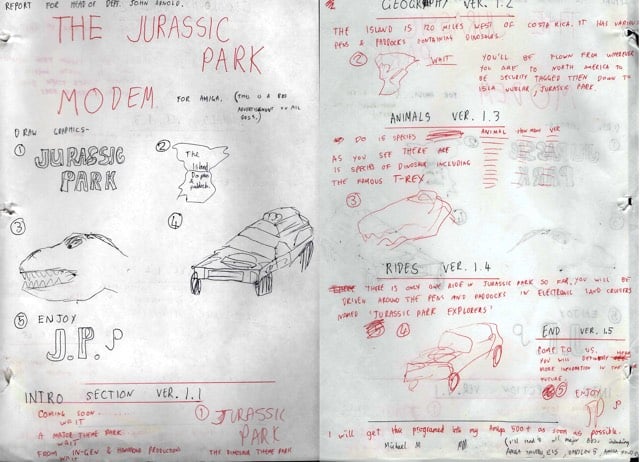 REPORT FOR HEAD OF DEPT. JOHN ARNOLD.
THE JURASSIC
PARK
MODEM
FOR AMIGA.
(THIS IS A BBS
ADVERTISEMENT TO ALL
DRAW GRAPHICS-
①
JURASSIC
PARK
②
The
Island
③
④
⑤ ENJOY
J.P.
INTRO SECTION VER. 1.1
COMING SOON......
WAIT
A MAJOR THEME PARK
WAIT
FROM IN-GEN & HAMMOND PRODUCTIONS
WAIT
① JURASSIC
PARK
THE DINOSAUR THEME PARK
GEOGRAPHY VER. 1.2
THE ISLAND IS 120 MILES WEST OF COSTA RICA. IT HAS VARIOUS
PENS & PADDOCKS CONTAINING DINOSAURS.
②
WAIT
YOU'LL BE FLOWN FROM WHEREVER
YOU ARE TO NORTH AMERICA TO
BE SECURITY TAGGED THEN DOWN TO
ISLA NUBLAR, JURASSIC PARK.
ANIMALS VER. 1.3
DO 15 SPECIES
ANIMAL HOW MANY VER
AS YOU SEE THERE ARE
15 SPECIES OF DINOSAUR INCLUDING
THE FAMOUS T-REX
③
RIDES VER. 1.4
THERE IS ONLY ONE RIDE IN JURASSIC PARK SO FAR, YOU WILL BE
DRIVEN AROUND THE PENS AND PADDOCKS IN ELECTRONIC LAND CRUISERS
NAMED 'JURASSIC PARK EXPLORERS'
④
END VER. 1.5
COME TO US.
YOU WILL
MORE INFORMATION IN THE
FUTURE.
⑤ ENJOY
JP
I will get this programed into my Amiga 500+ as soon as possible.
Michael M